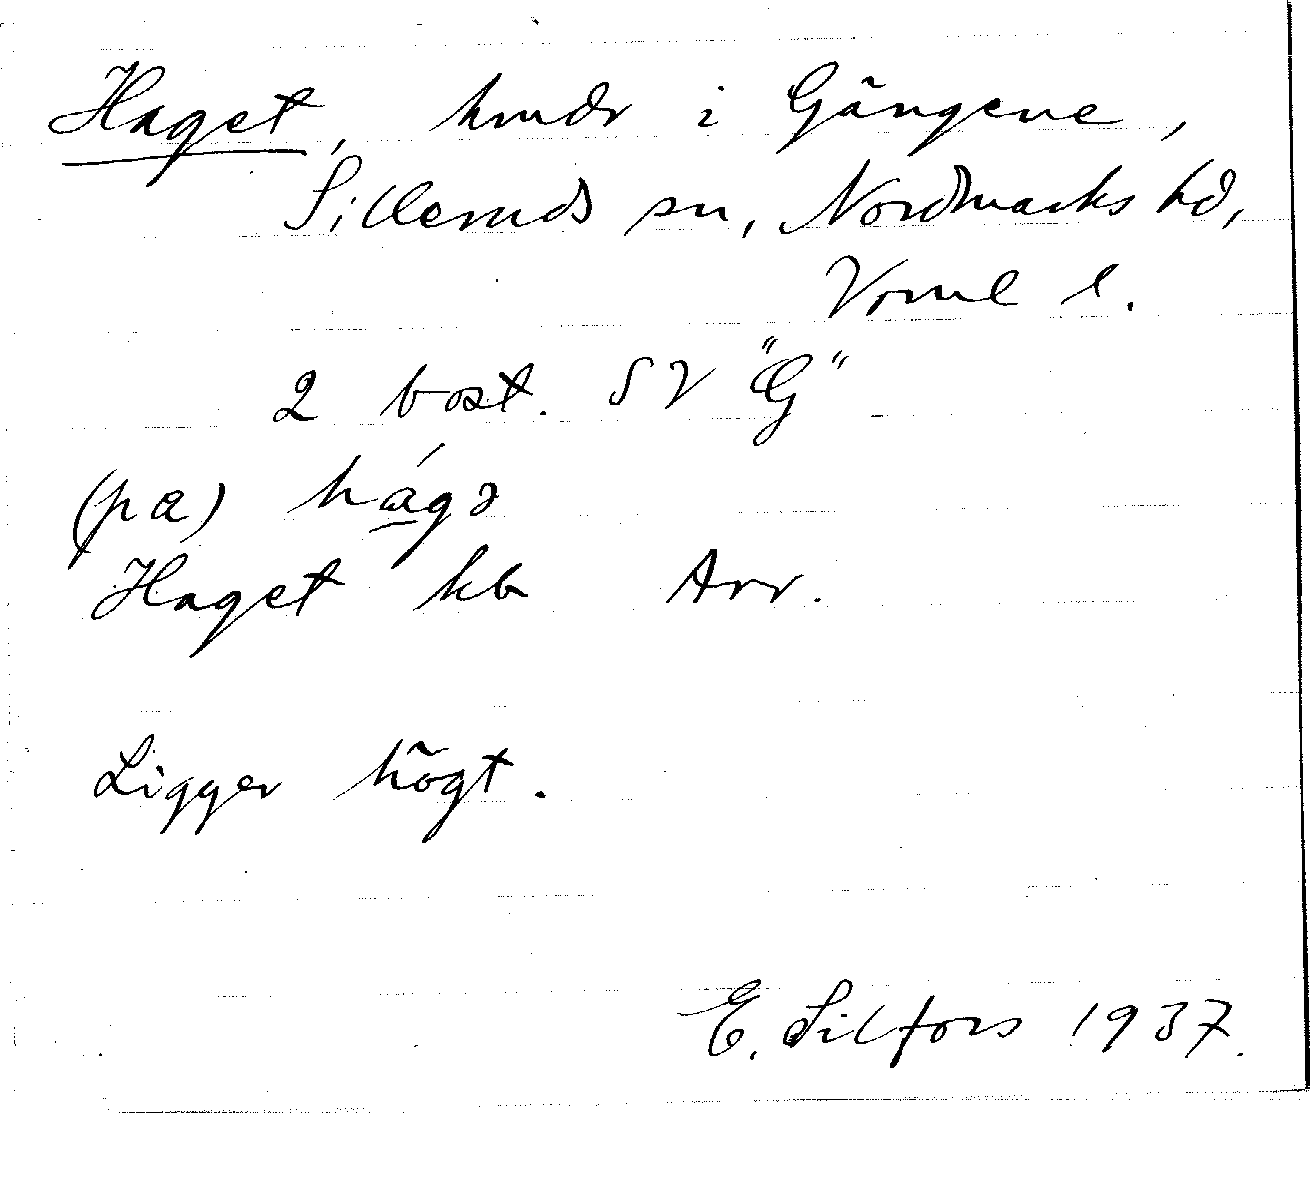 Haget, hmdr i Gängene,
Silleruds sn, Nordmarks hd,
Vrml l.
2 bost. SV "G"
(pa) hágə
Haget kb Arr.
Ligger högt.
E. Silfors 1937.